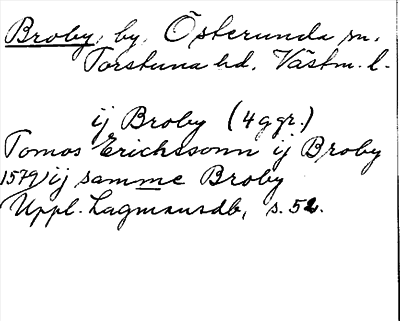 Broby, by, Österunda sn,
Torstuna hd, Västm. l.
ij Broby (4 ggr.)
Tomos Erichssonn ij Broby
1579) ij samme Broby
Uppl. Lagmansdb, s. 52.